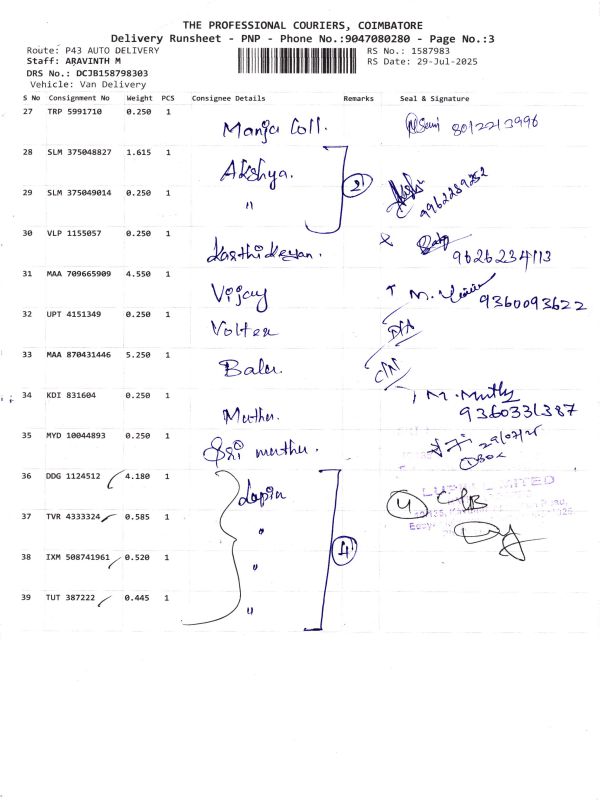 THE PROFESSIONAL COURIERS, COIMBATORE
Delivery Runsheet - PNP - Phone No.:9047080280 - Page No.:3
Route: P43 AUTO DELIVERY
Staff: ARAVINTH M
DRS No.: DCJB158798303
Vehicle: Van Delivery
RS No.: 1587983
RS Date: 29-Jul-2025
S No Consignment No Weight PCS Consignee Details Remarks Seal & Signature
27 TRP 5991710 0.250 1 Manja Coll. 8012213996
28 SLM 375048827 1.615 1 Akshya. 2
29 SLM 375049014 0.250 1 " 9962289252
30 VLP 1155057 0.250 1 Karthikeyan. 9626234113
31 MAA 709665909 4.550 1 Vijay M. 9360093622
32 UPT 4151349 0.250 1 Volter
33 MAA 870431446 5.250 1 Balu.
34 KDI 831604 0.250 1 Muthu. M. Muthu 9360331387
35 MYD 10044893 0.250 1 Sri muthu. 29/07/25
36 DDG 1124512 4.180 1 Lupin
37 TVR 4333324 0.585 1 " 4
38 IXM 508741961 0.520 1 "
39 TUT 387222 0.445 1 "
LIMITED